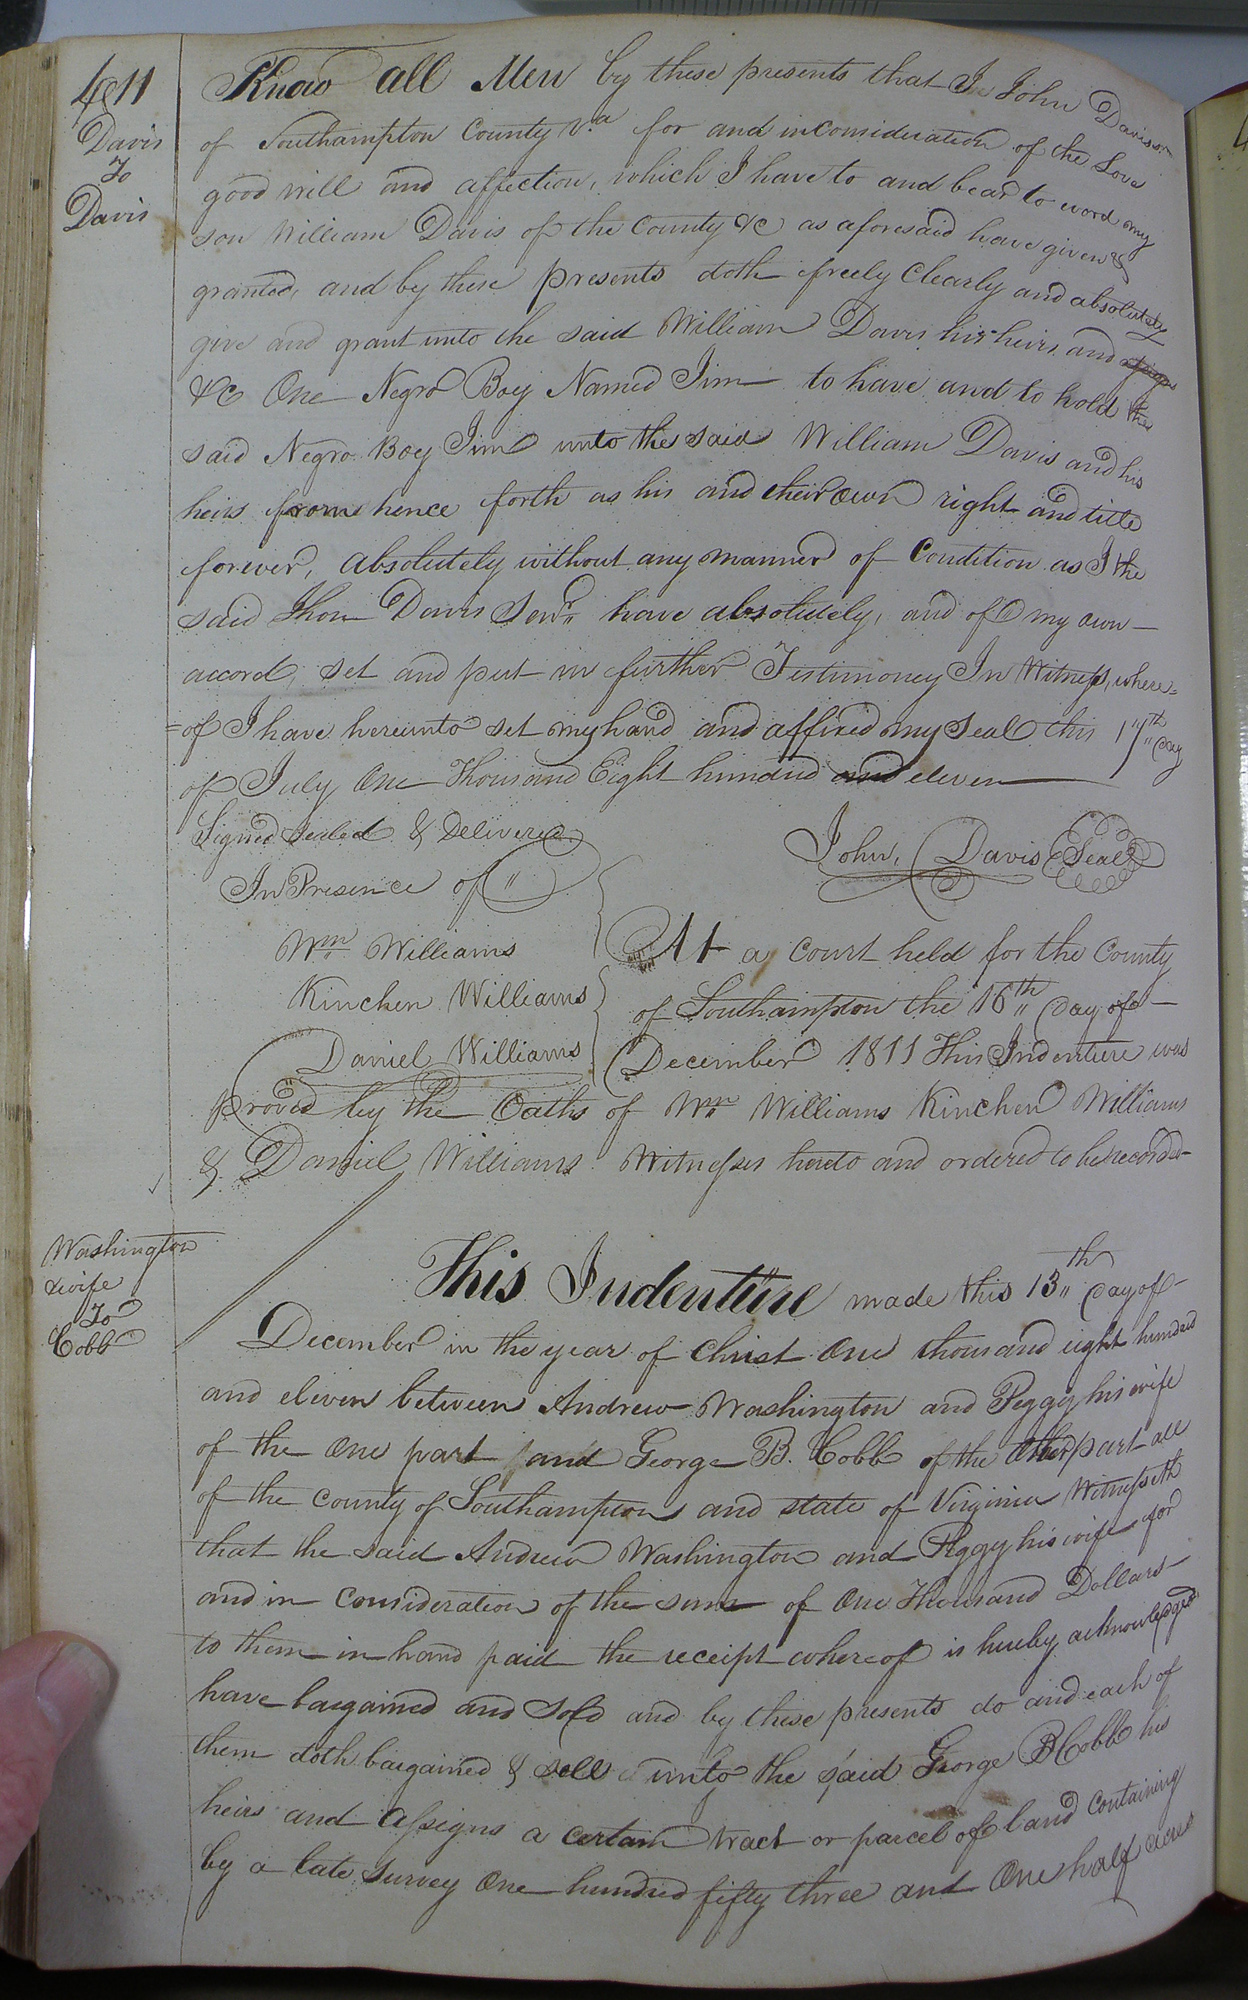 411
Davis
To
Davis
Know all Men by these presents that I John Davis Senr
of Southampton County Va for and in consideration of the Love
good will and affection, which I have to and bear to word my
son William Davis of the County &c as aforesaid have given &
granted, and by these presents doth freely Clearly and absolutely
give and grant unto the said William Davis his heirs and assigns
&c One Negro Boy Named Jim to have and to hold the
said Negro Boy Jim unto the said William Davis and his
heirs from hence forth as his and their own right and title
forever, absolutely without any manner of Condition as I the
said Jhon Davis Senr. have absolutely, and of my own
accord, set and put in further Testimoney In Witness, where=
=of I have hereunto set my hand and affixed my Seal this 17th day
of July One Thousand Eight hundred and eleven
Signed Sealed & Delivered
In Presence of "
John, Davis Seal
Wm Williams
Kinchen Williams
Daniel Williams
At a Court held for the County
of Southampton the 16th Day of
December 1811 This Indenture was
proved by the Oaths of Wm Williams Kinchen Williams
& Daniel Williams Witnesses hereto and ordered to be recorded
Washington
& wife
To
Cobb
This Indenture made this 13th day of
December in the year of Christ One thousand eight hundred
and eleven between Andrew Washington and Peggy his wife
of the One part and George B. Cobb of the Other part all
of the County of Southampton and state of Virginia Witnesseth
that the said Andrew Washington and Peggy his wife for
and in Consideration of the sum of One Thousand Dollars
to them in hand paid the receipt whereof is hereby acknowledged
have bargained and Sold and by these presents do and each of
them doth bargained & Sell unto the said George B Cobb his
heirs and assigns a certain tract or parcel of land Containing
by a late survey One hundred fifty three and One half acres